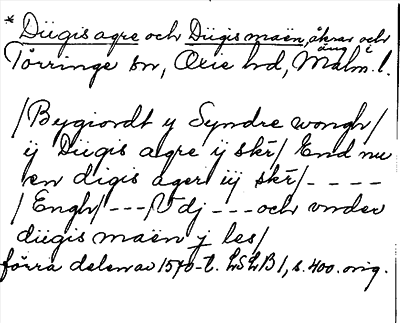 * Diigis agre och Diigis maën, åkrar och äng i
Törringe sn, Oxie hd, Malm. l.
/Bygiordt y Syndre wongh/
ij Diigis agre ij skr̄/ End nu
en digis ager iij skr̄/ - - - -
/Engh/ - - - /Vdj - - - och vnder
diigis maën j les/
förra delen av 1570-t. LSLB 1, s. 400. orig.